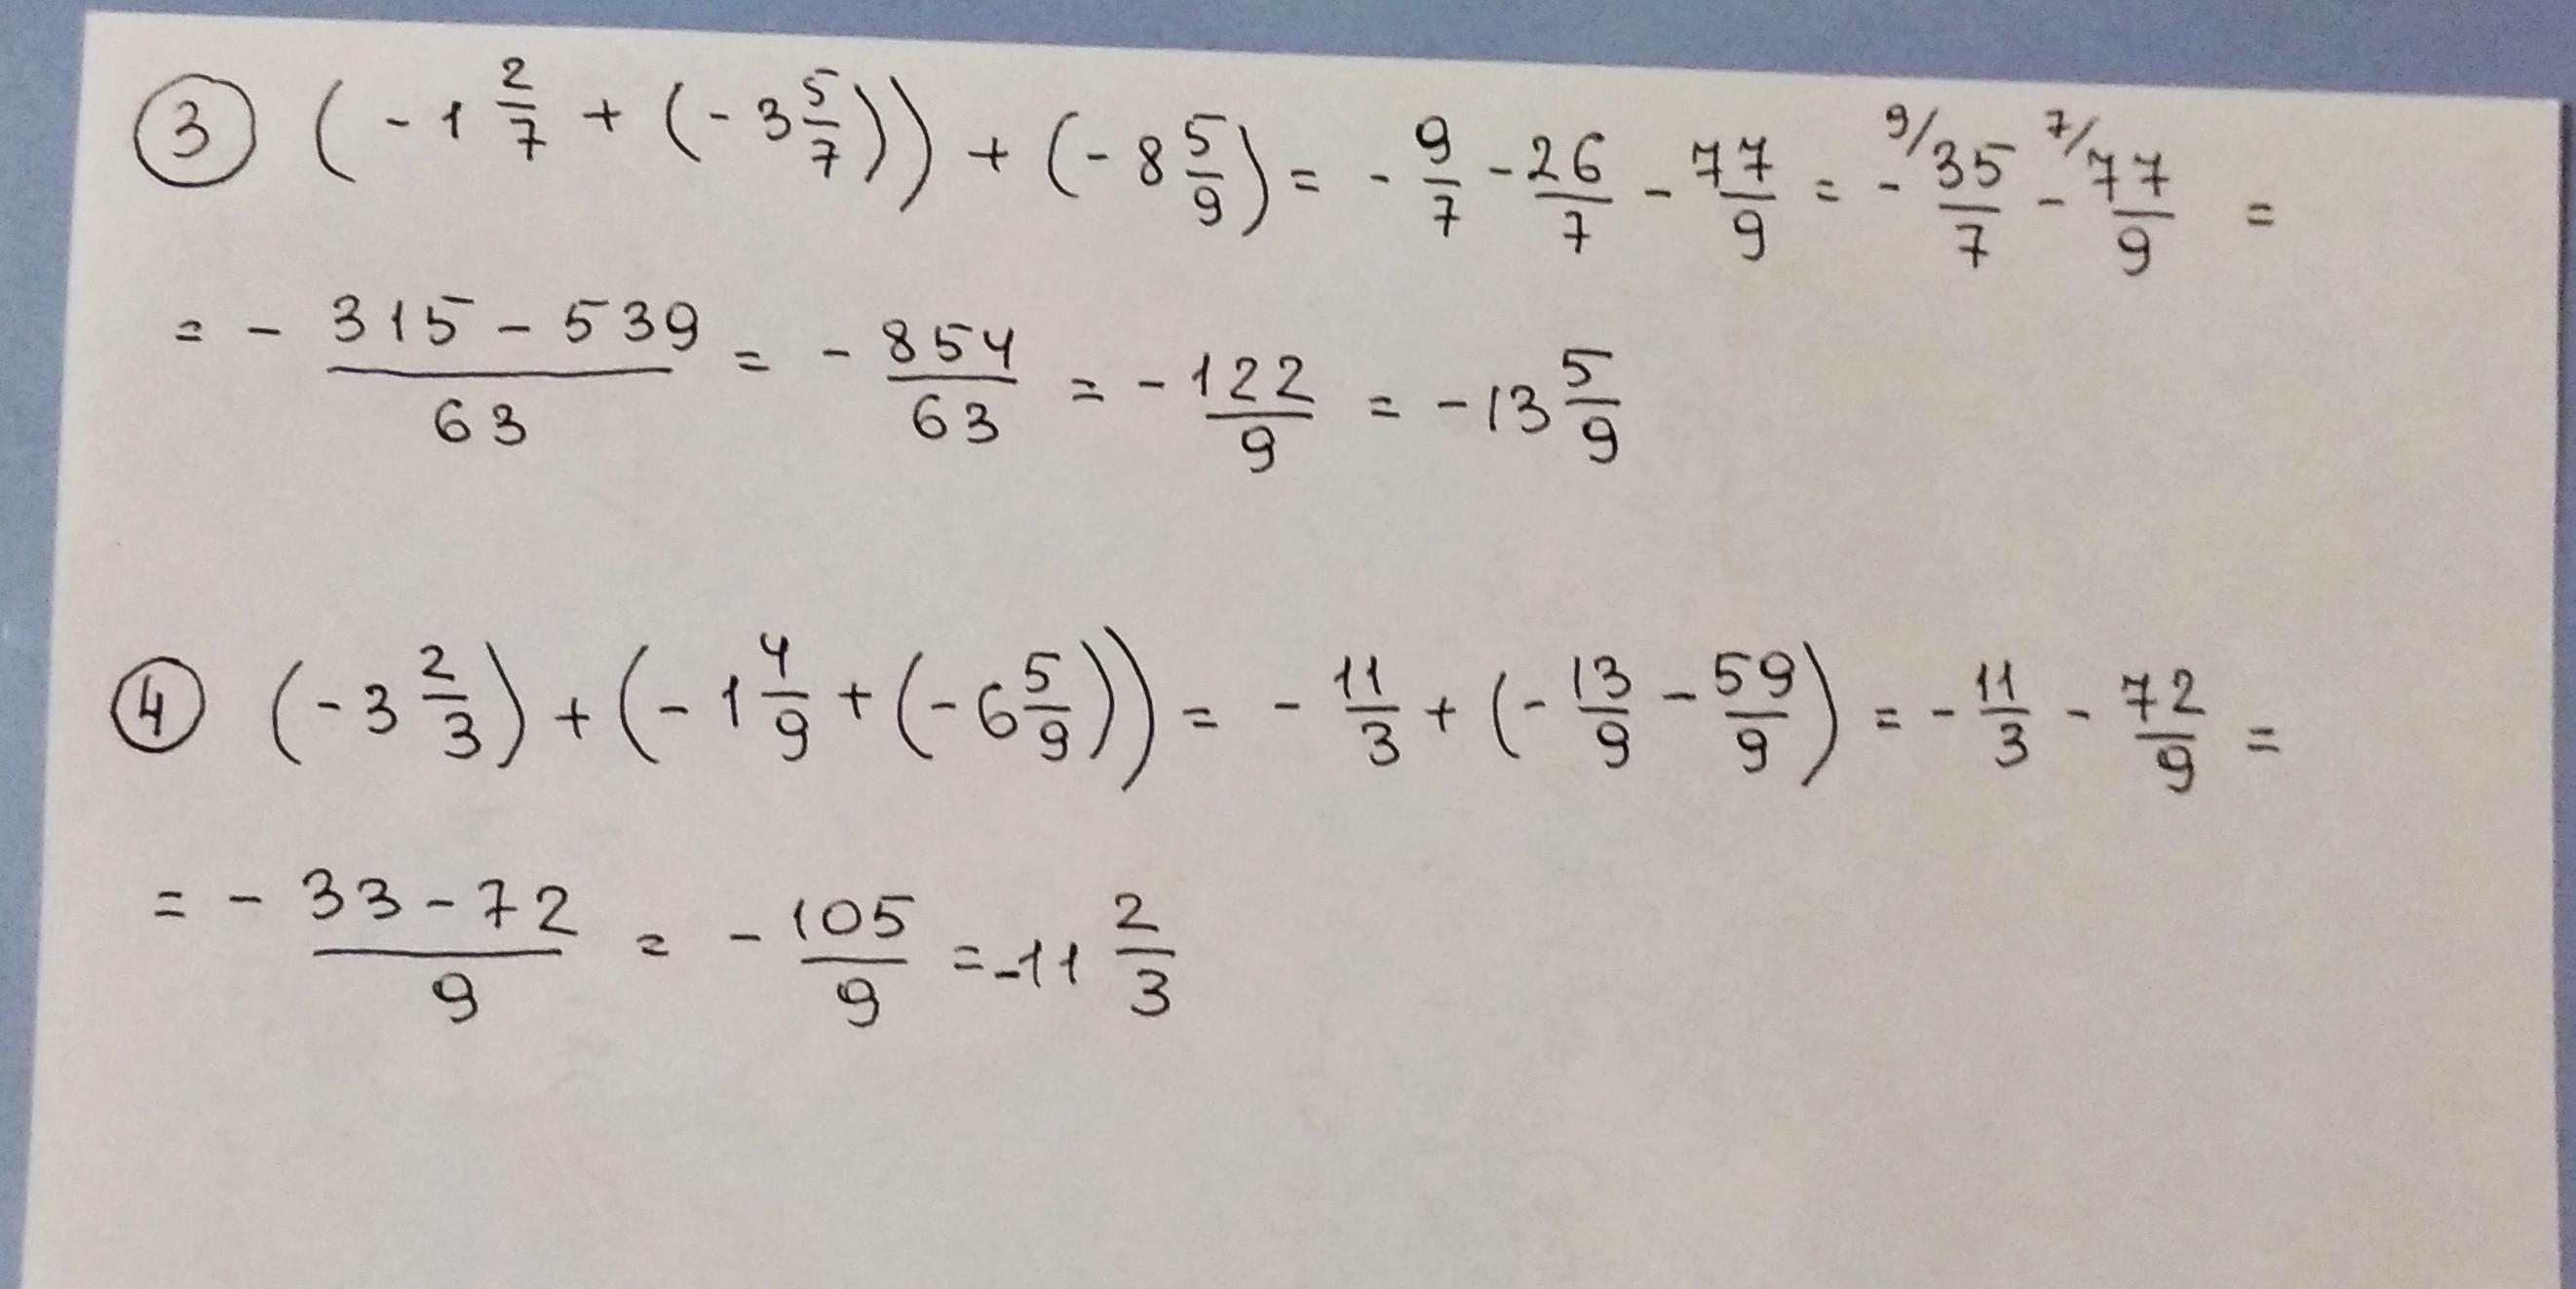 ③ (-1 2/7 + (-3 5/7)) + (-8 5/9) = - 9/7 - 26/7 - 77/9 = - ⁹⁄35/7 - ⁷⁄77/9 =
= - (315 - 539)/63 = - 854/63 = - 122/9 = -13 5/9
④ (-3 2/3) + (-1 4/9 + (-6 5/9)) = - 11/3 + (- 13/9 - 59/9) = - 11/3 - 72/9 =
= - (33 - 72)/9 = - 105/9 = -11 2/3